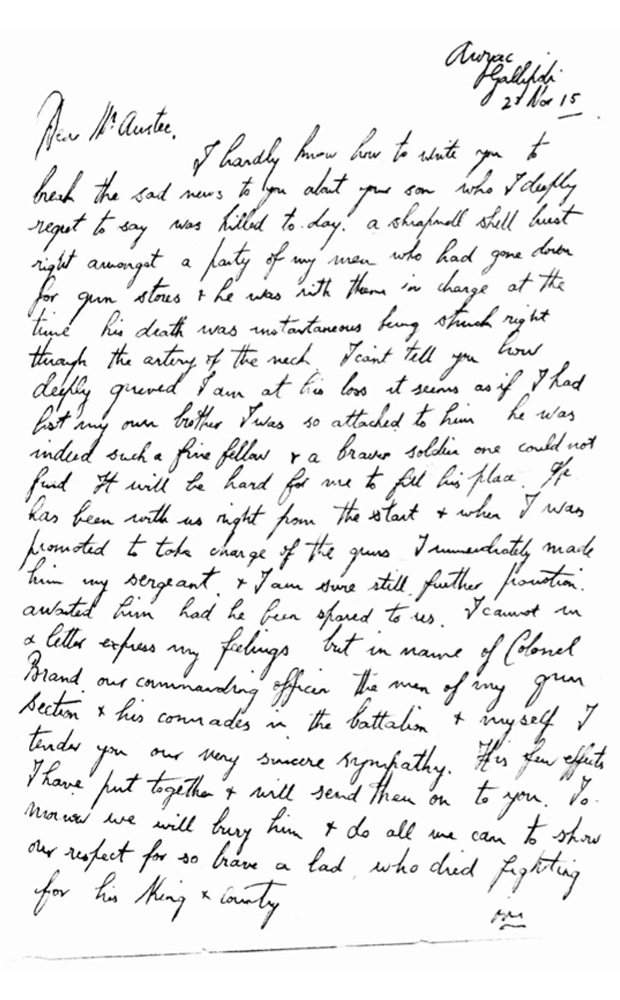 Anzac
Gallipoli
23 Nov 15
Dear Mr Austee,
I hardly know how to write you to
break the sad news to you about your son who I deeply
regret to say was killed to-day. a shrapnell shell burst
right amongst a party of my men who had gone down
for gun stores & he was with them in charge at the
time his death was instantaneous being struck right
through the artery of the neck I cant tell you how
deeply grieved I am at his loss it seems as if I had
lost my own brother I was so attached to him he was
indeed such a fine fellow & a braver soldier one could not
find It will be hard for me to fill his place. He
has been with us right from the start & when I was
promoted to take charge of the guns I immediately made
him my sergeant. & I am sure still further promotion.
awaited him had he been spared to us. I cannot in
a letter express my feelings but in name of Colonel
Brand our commanding officer the men of my gun
section & his comrades in the battalion & myself I
tender you our very sincere sympathy. His few effects
I have put together & will send them on to you. To-
morrow we will bury him & do all we can to show
our respect for so brave a lad, who died fighting
for his King & county